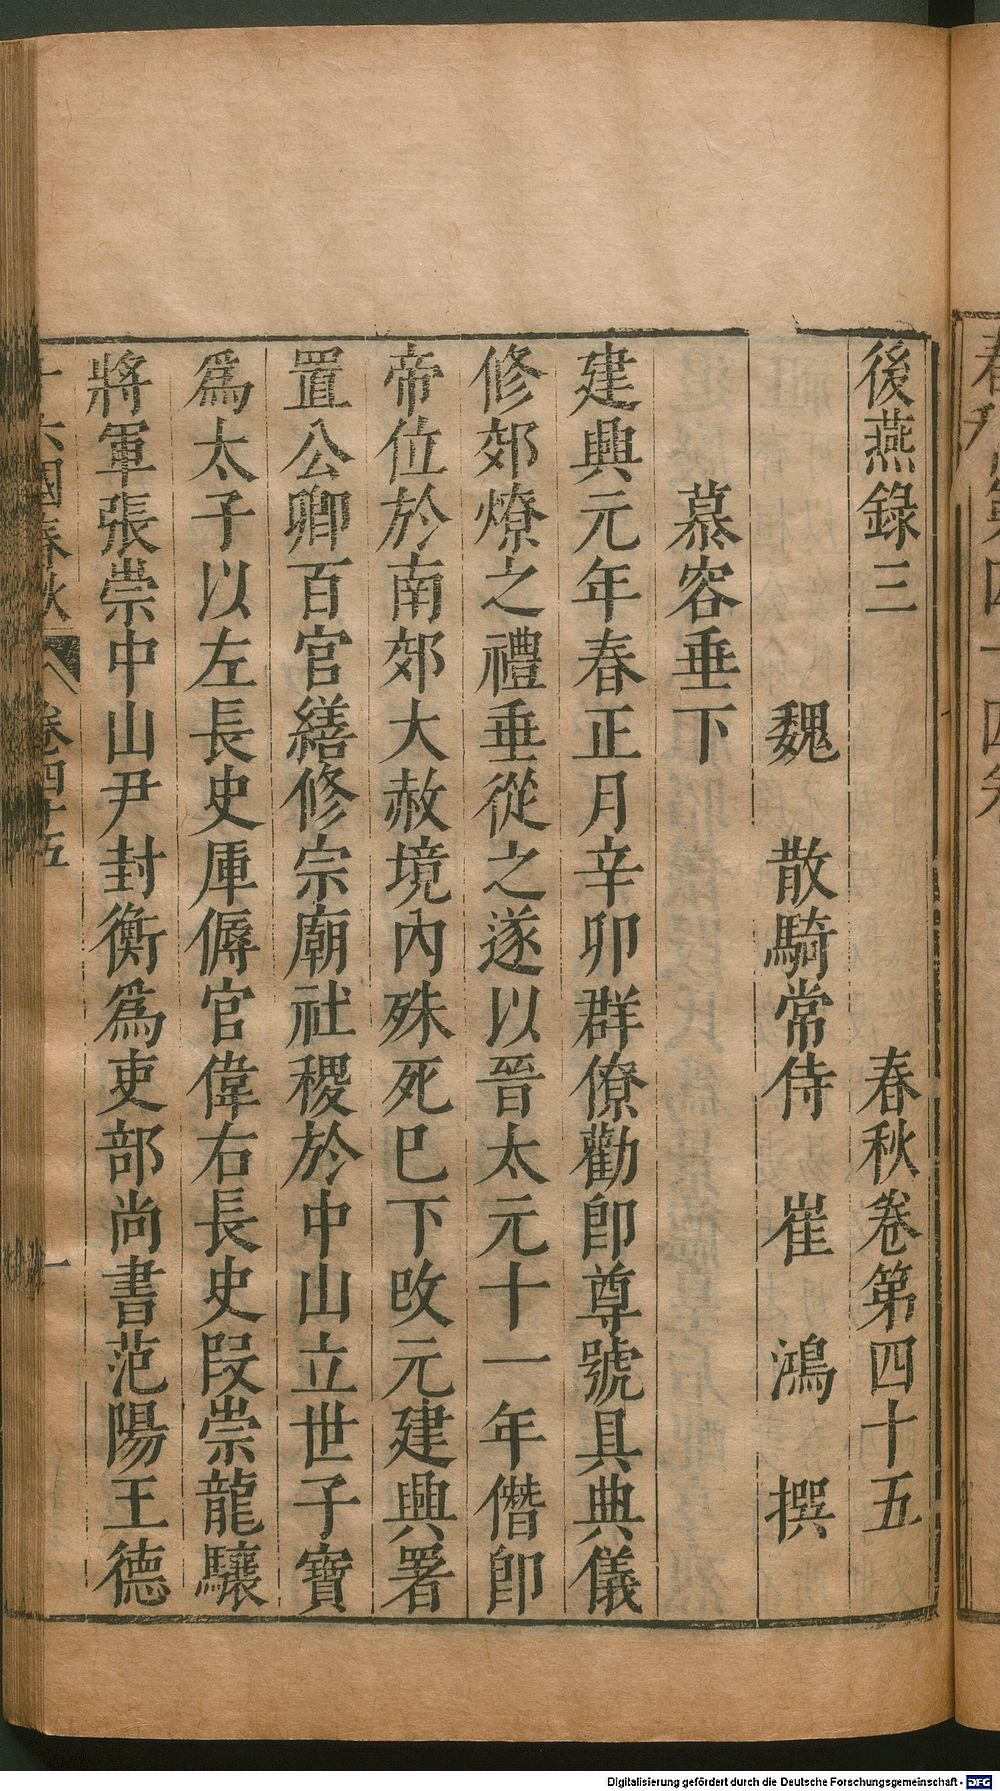 後燕錄三　春秋卷第四十五
魏　散騎常侍　崔　鴻　撰
慕容垂下
建興元年春正月辛卯群僚勸卽尊號具典儀
修郊燎之禮垂從之遂以晉太元十一年僭卽
帝位於南郊大赦境內殊死巳下改元建興署
置公卿百官繕修宗廟社稷於中山立世子寶
爲太子以左長史庫傉官偉右長史段崇龍驤
將軍張崇中山尹封衡爲吏部尚書范陽王德
十六國春秋　卷四十五　一
Digitalisierung gefördert durch die Deutsche Forschungsgemeinschaft - DFG